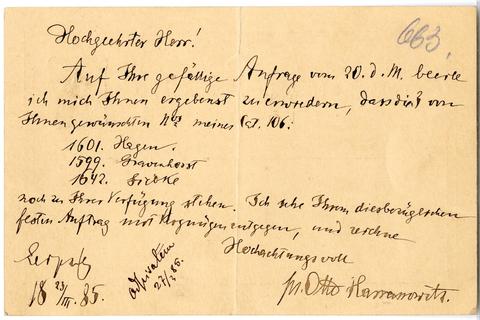 663.
Hochgeehrter Herr!
Auf Ihre gefällige Anfrage vom 20. d. M. beehre
ich mich Ihnen ergebenst zu erwiedern, dass die von
Ihnen gewünschten Nos meines Cat. 106:
1601. Hagen.
1599. Gravenhorst
1642.
noch zu Ihrer Verfügung stehen. Ich sehe Ihrem diesbezüglichen
festen Auftrag mit Vergnügen entgegen, und zeichne
Hochachtungsvoll
pr. Otto Harrassowitz.
Leipzig
18 23/III. 85.
27/3 85.